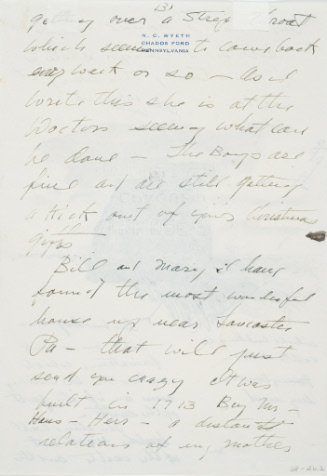 (3)
N. C. WYETH
CHADDS FORD
PENNSYLVANIA
going over a Strep throat
which seems to come back
every week or so – As I
write this she is at the
Doctors seeing what can
be done – The Boys are
fine and are still getting
a kick out of your Christmas
gifts
Bill and Mary & I have
found the most wonderful
house up near Lancaster
Pa – that will just
send you crazy it was
built in 1713 By Mr –
Hans – Herr – a distant
relations of my mother